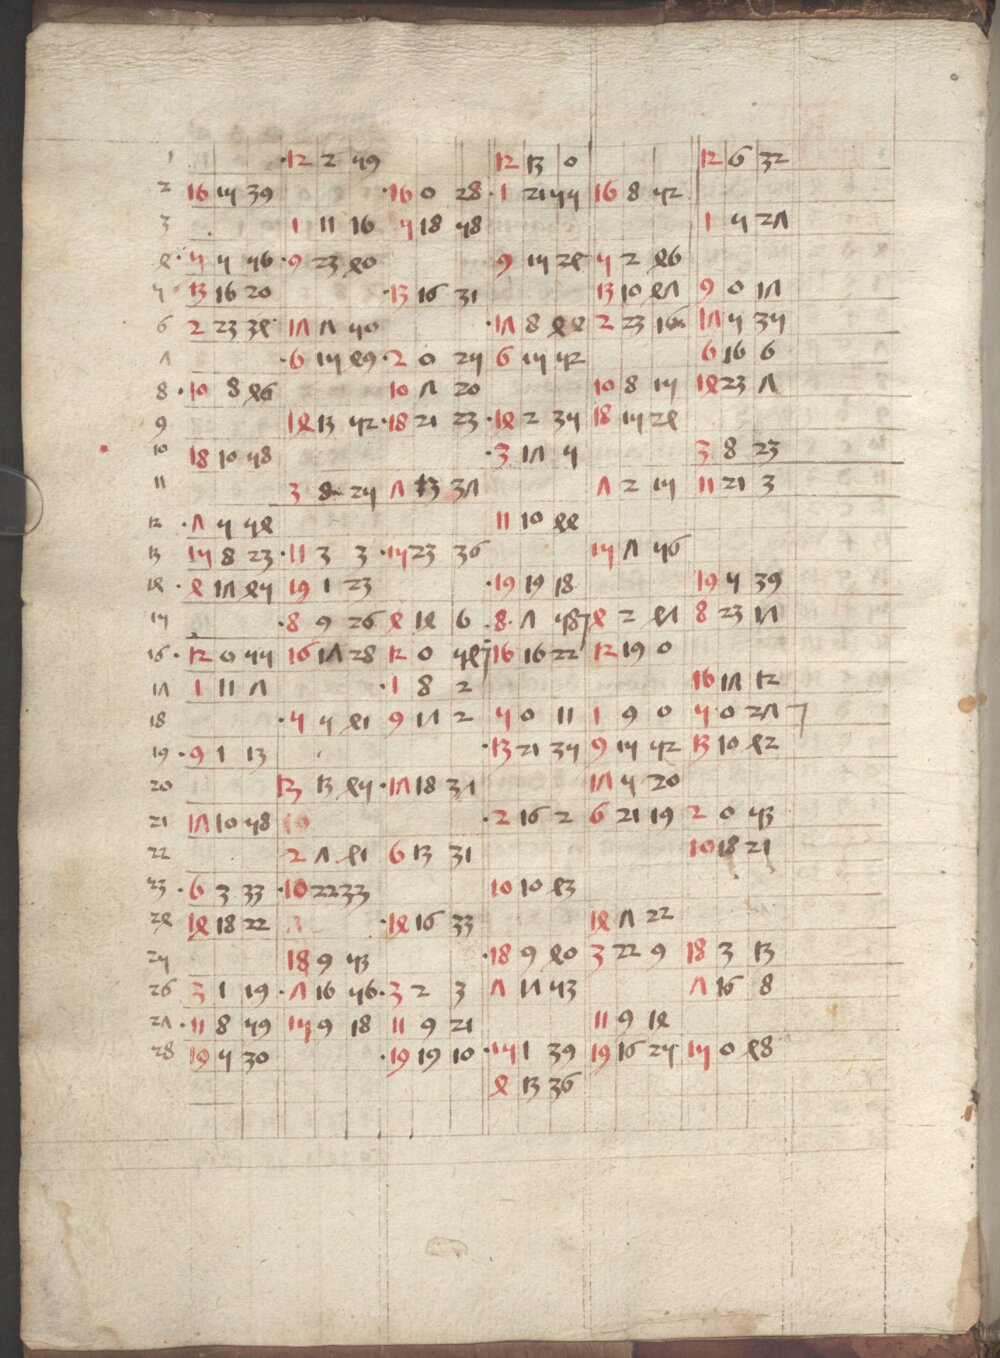 1 12 2 59 12 13 0 12 6 32
2 16 15 39 16 0 28 1 21 55 16 8 52
3 1 11 16 5 18 58 1 5 27
4 5 5 56 9 23 40 9 15 24 5 2 46
5 13 16 20 13 16 31 13 10 47 9 0 17
6 2 23 34 17 7 50 17 8 44 2 23 16 17 5 35
7 6 15 49 2 0 25 6 15 52 6 16 6
8 10 8 46 10 7 20 10 8 15 14 23 7
9 14 13 52 18 21 23 14 2 35 18 15 24
10 18 10 58 3 17 5 3 8 23
11 3 8 25 7 13 37 7 2 15 11 21 3
12 7 5 54 11 10 44
13 15 8 23 11 3 3 15 23 36 15 7 56
14 4 17 45 19 1 23 19 19 18 19 5 39
15 8 9 26 4 14 6 8 7 58 4 2 47 8 23 17
16 12 0 55 16 17 28 12 0 54 16 16 22 12 19 0
17 1 11 7 1 8 2 16 17 12
18 5 5 41 9 17 2 5 0 11 1 9 0 5 0 27
19 9 1 13 13 21 35 9 15 52 13 10 42
20 13 13 45 17 18 37 17 5 20
21 17 10 58 2 16 2 6 21 19 2 0 53
22 2 7 41 6 13 31 10 18 21
23 6 3 33 10 22 33 10 10 43
24 14 18 22 14 16 33 14 7 22
25 18 9 53 18 9 40 3 22 9 18 3 13
26 3 1 19 7 16 56 3 2 3 7 17 53 7 16 8
27 11 8 59 15 9 18 11 9 21 11 9 14
28 19 5 30 19 19 10 15 1 39 19 16 25 15 0 48
4 13 36